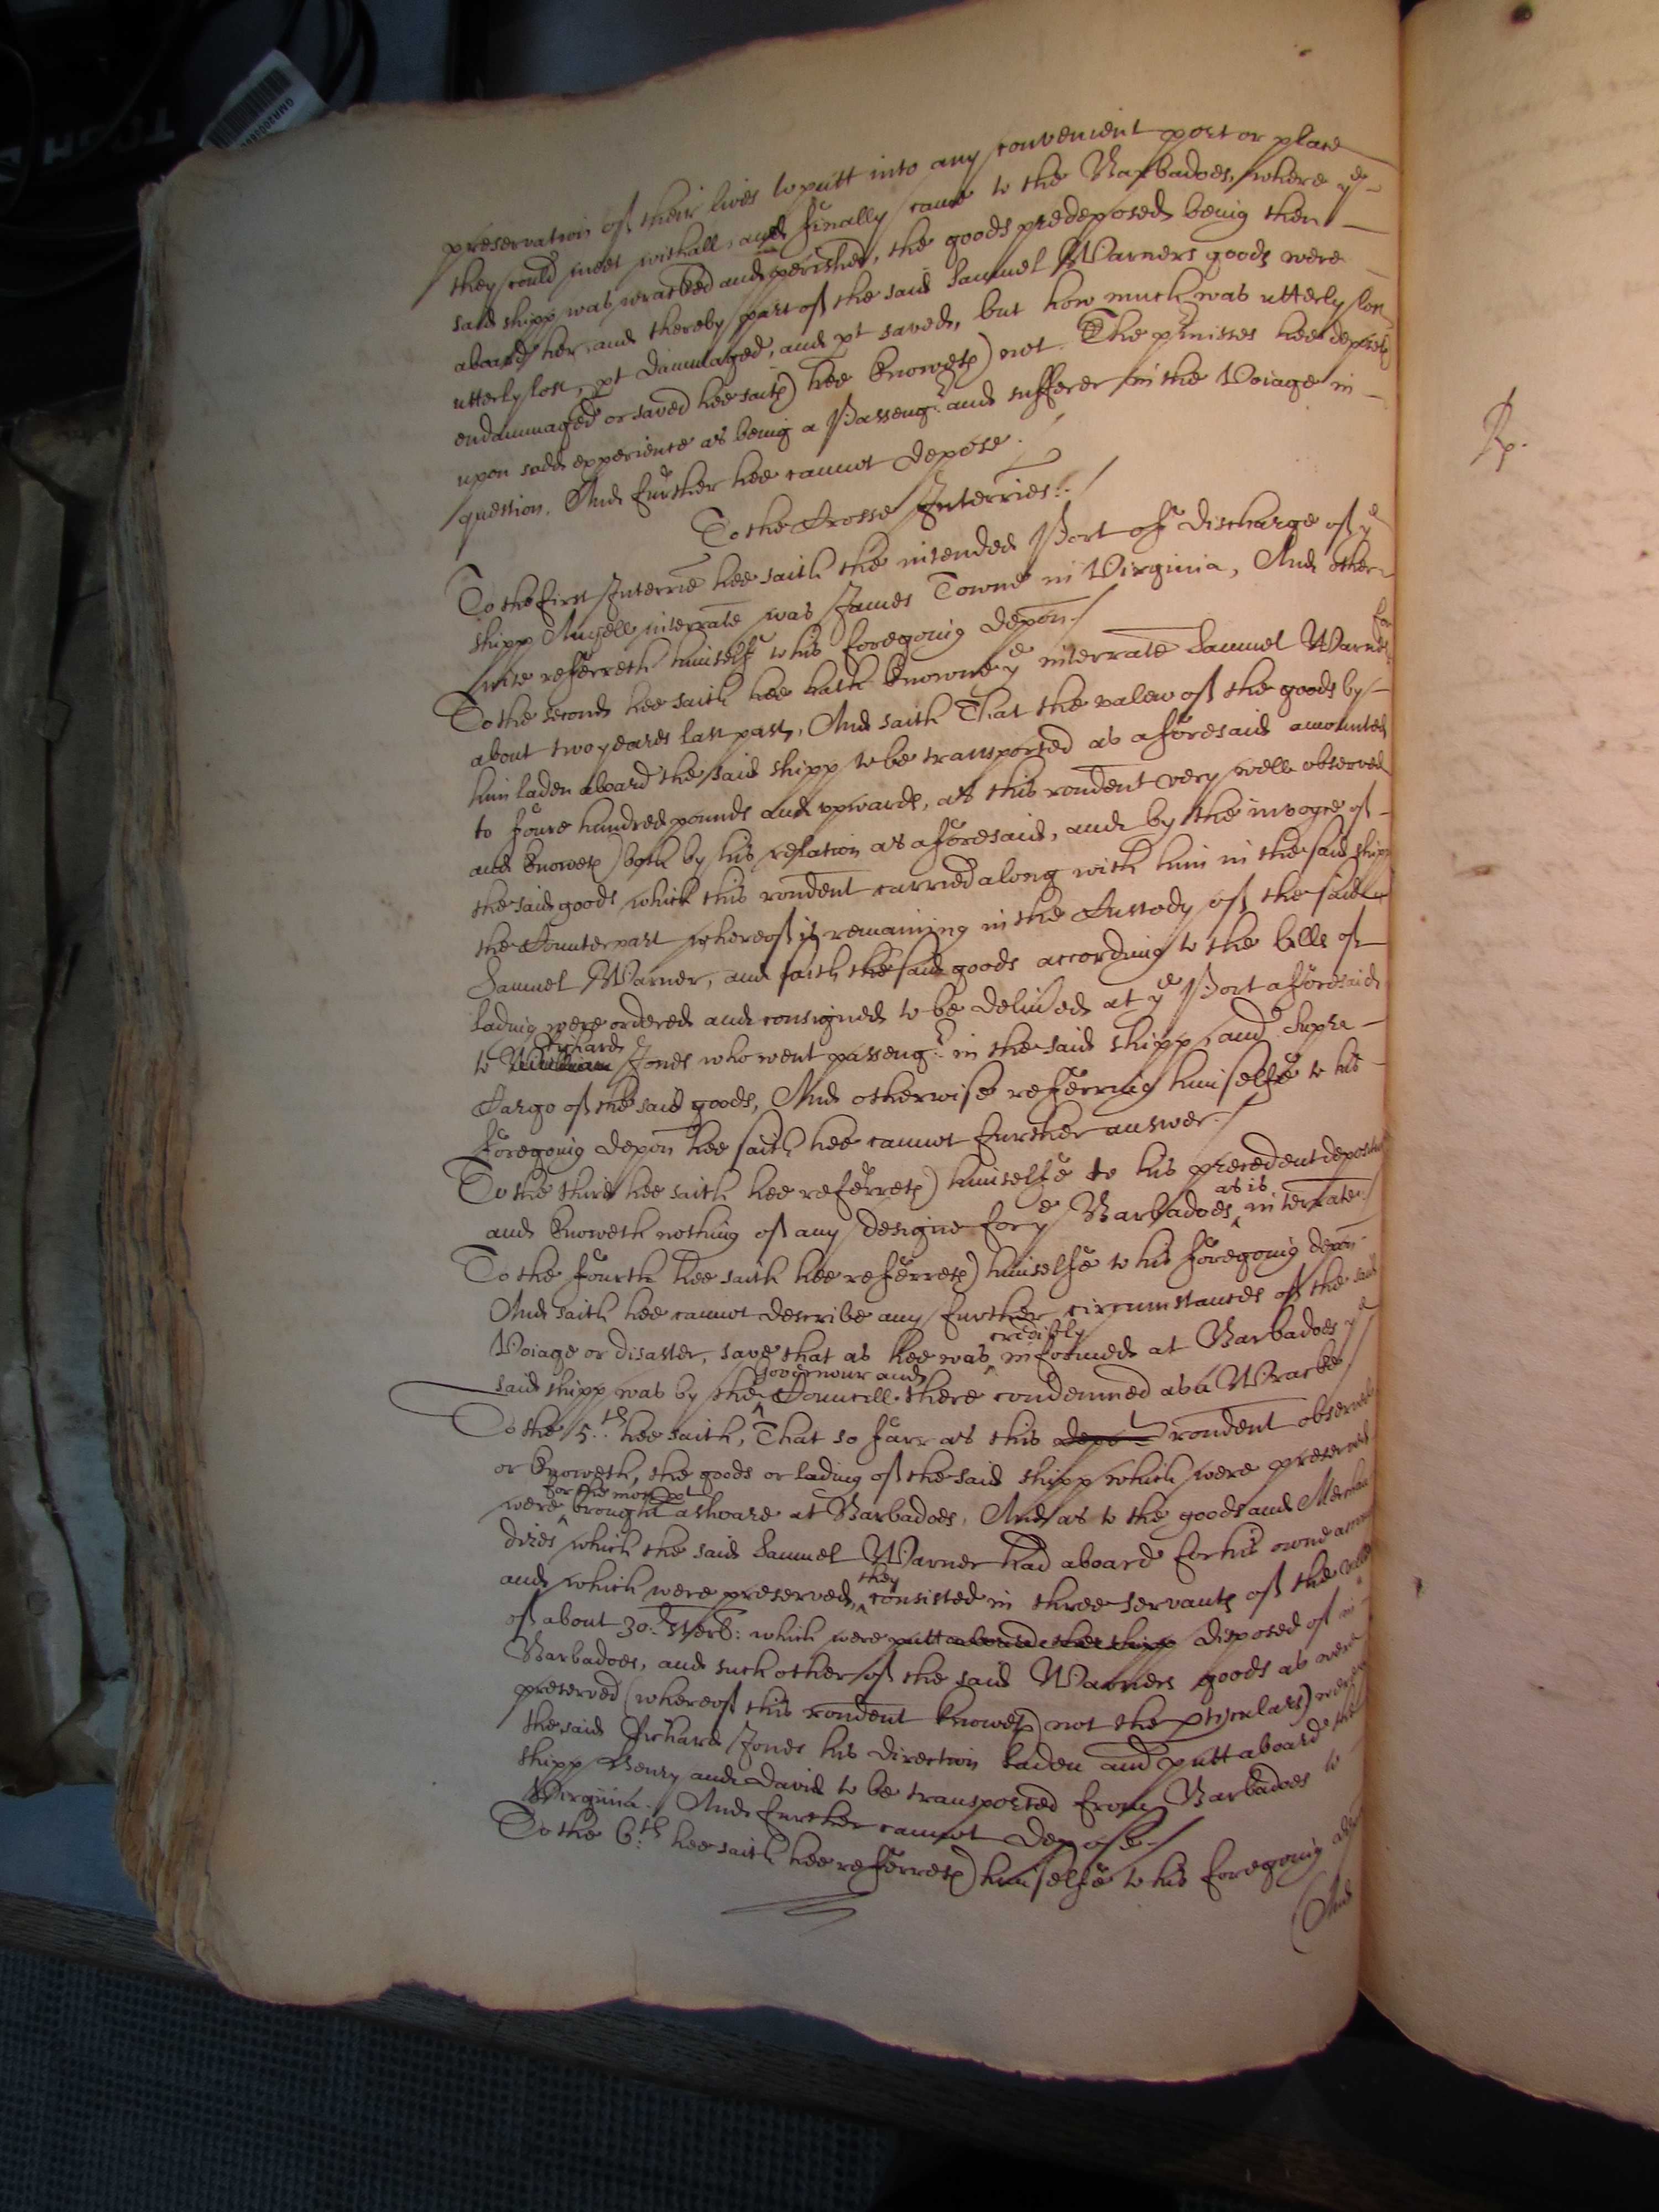 preservation of their lives to putt into any convenient port or place
they could meet withall, and finally came to the Barbadoes, where ye
said shipp was wracked and perished, the goods predeposed being then
aboard her, and thereby part of the said Samuel Warners goods were
utterly lost, pt dammaged, and pt saved, but how much was utterly lost
endammaged or saved hee saith) hee knoweth) not. The pmisses hee deposeth
upon sadd experience as being a Passengr. and sufferer in the Voiage in
question. And further hee cannot depose.
To the Crosse Interries:
To the first Interrie hee saith the intended Port of discharge of ye
shipp Angell interrate was James Towne in Virginia, And other-
wise referreth himself to his foregoing depon./
To the second hee saith hee hath knowne ye interrate Samuel Warner for
about two yeares last past, And saith That the valew of the goods by
him laden aboard the said shipp to be transported as aforesaid amounted
to foure hundred pounds and upwards, as this rondent very well observed
and knoweth) both by his relation as aforesaid, and by the invoyce of
the said goods which this rondent carried along with him in the said shipp
the Counterpart whereof is remaining in the Custody of the said
Samuel Warner, and saith the said goods according to the bills of
lading were ordered and consigned to be delivered at ye Port aforesaid
to William Richard Jones who went passengr. in the said shipp, and Supra
Cargo of the said goods, And otherwise referring himselfe to his
foregoing depon hee saith hee cannot further answer./
To the third hee saith hee referreth) himselfe to his precedent deposition
and knoweth nothing of any designe for ye Barbadoes as is interrate./
To the fourth hee saith hee referreth) himselfe to his foregoing depon
And saith hee cannot describe any further circumstances of the said
Voiage or disaster, save that as hee was credibly informed at Barbadoes ye
said shipp was by the Governour and Councell there condemned as a Wracke/
To the 5th. hee saith, That so farr as this depo rondent observed
or knoweth, the goods or lading of the said shipp which were preserved
were for the most pt brought ashoare at Barbadoes, And as to the goods and Merchan
dizes which the said Samuel Warner had aboard for his owne
and which were preserved, they consisted in three servants of the
of about 30.l sterl: which were putt aboard disposed of in
Barbadoes, and such other of the said Warners goods as were
preserved (whereof this rondent knoweth) not the pticulars)
the said Richard Jones his direction laden and putt aboard the
shipp Henry and David to be transported from Barbadoes to
Virginia. And further cannot depose./
To the 6th. hee saith hee referreth) himselfe to his foregoing
And